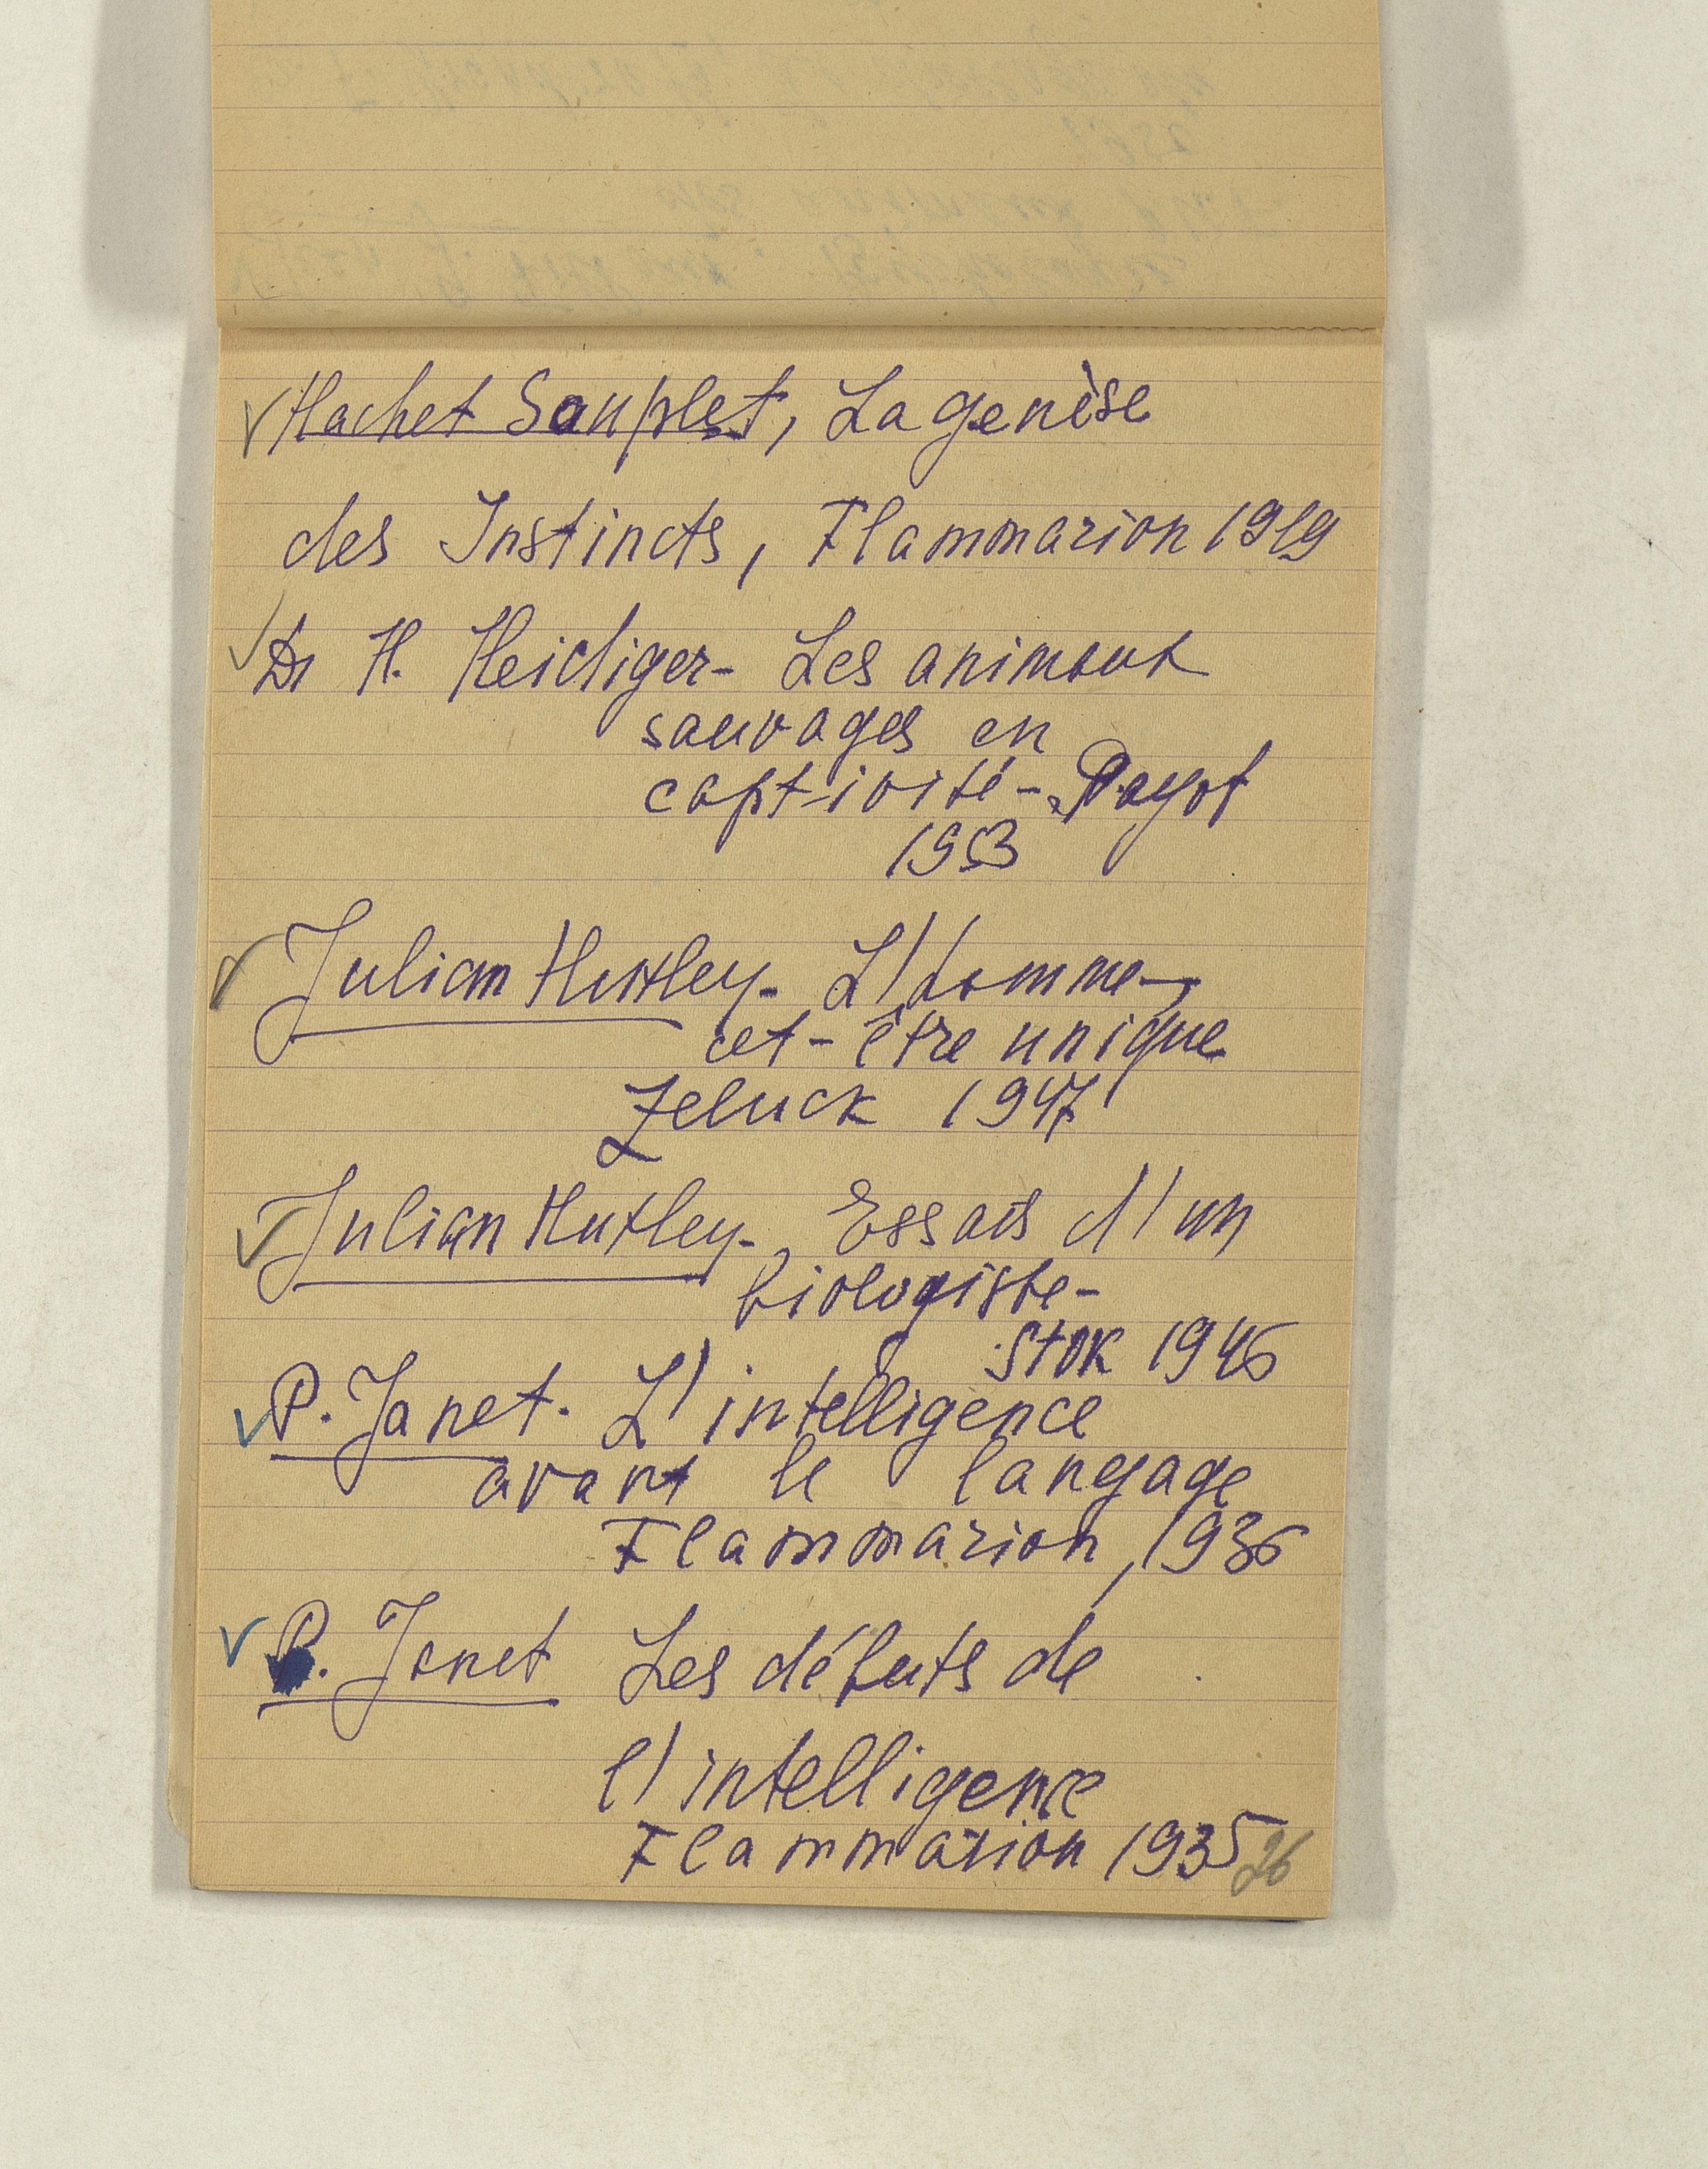 Hachet Souplet, La genèse
des Instincts, Flammarion 1919
Dr H. Heidiger - Les animaux
sauvages en
captivité - Payot
1953
Julian Huxley - L'homme,
cet - être unique
Zeluck 1947
Julian Huxley -, Essais d'un
biologiste -
Stok 1946
P. Janet. L'intelligence
avant le langage
Flammarion, 1936
P. Janet Les débuts de
l'intelligence
Flammarion 1935
26